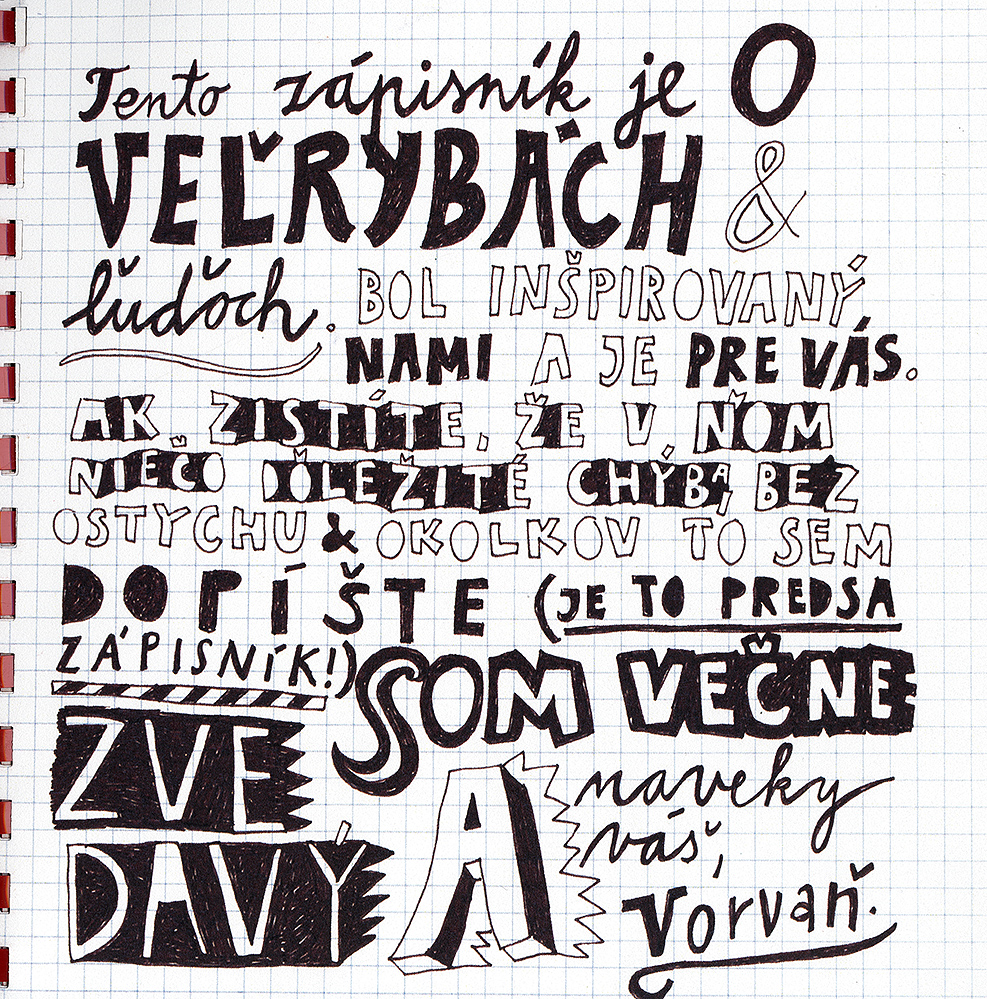 Tento zápisník je O
VEĽRYBÁCH &
ľuďoch. BOL INŠPIROVANÝ
NAMI A JE PRE VÁS.
AK ZISTÍTE, ŽE V ŇOM
NIEČO DÔLEŽITÉ CHÝBA, BEZ
OSTYCHU & OKOLKOV TO SEM
DOPÍŠTE (JE TO PREDSA
ZÁPISNÍK!) SOM VEČNE
ZVE
DAVÝ A naveky
váš,
Vorvaň.